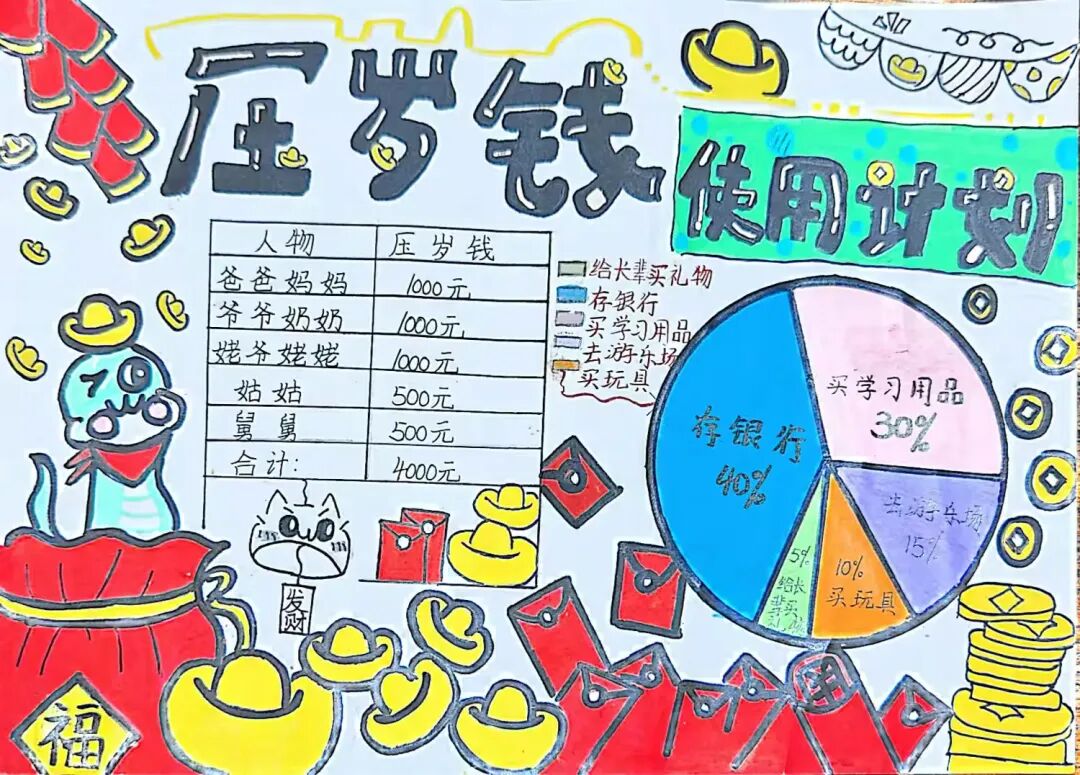 压岁钱
使用计划
人物 压岁钱
爸爸妈妈 1000元
爷爷奶奶 1000元
姥爷姥姥 1000元
姑姑 500元
舅舅 500元
合计: 4000元
给长辈买礼物
存银行
买学习用品
去游乐场
买玩具
买学习用品
30%
存银行
40%
去游乐场
15%
10%
买玩具
5%
给长
辈买
发财
福